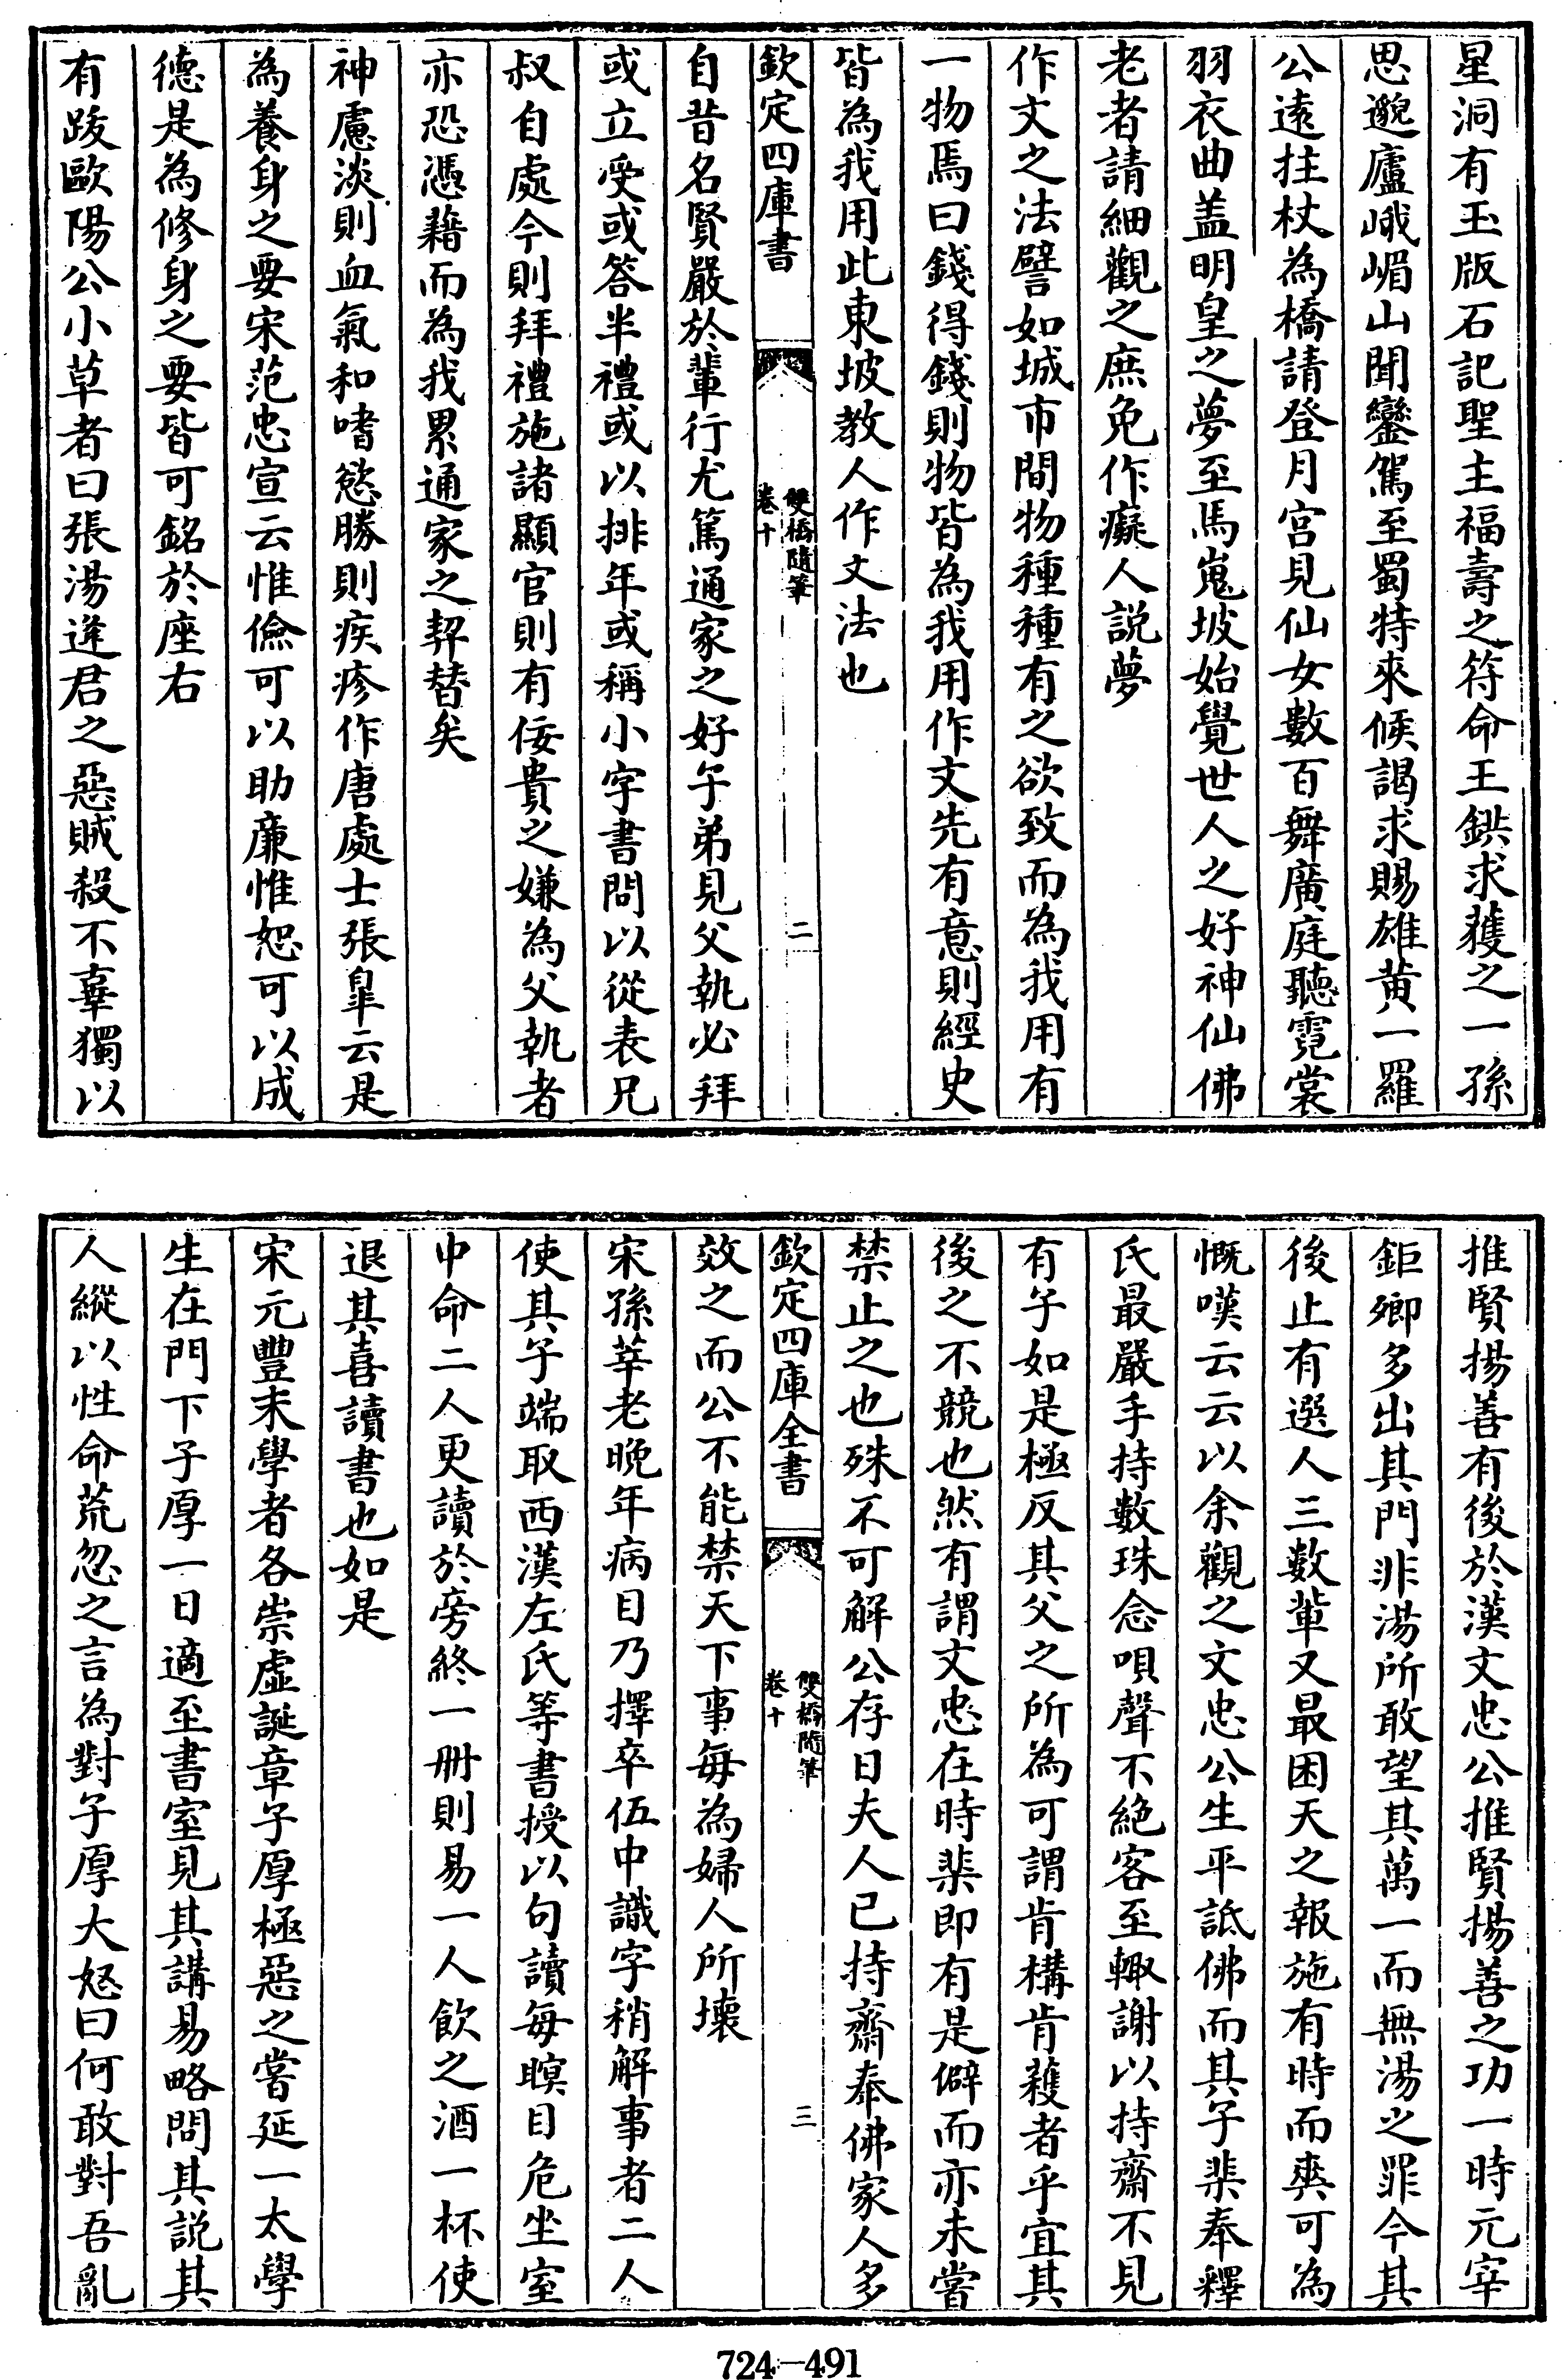 星洞有玉版石記聖主福壽之符命王鉷求獲之一孫
思邈廬峨嵋山聞鑾駕至蜀特來候謁求賜雄黃一羅
公遠拄杖為橋請登月宮見仙女數百舞廣庭聽霓裳
羽衣曲盖明皇之夢至馬嵬坡始覺世人之好神仙佛
老者請細觀之庶免作癡人説夢
作文之法譬如城市間物種種有之欲致而為我用有
一物焉曰錢得錢則物皆為我用作文先有意則經史
皆為我用此東坡教人作文法也
欽定四庫書
雙橋隨筆
卷十
二
自昔名賢嚴於輩行尤篤通家之好子弟見父執必拜
或立受或答半禮或以排年或稱小字書問以從表兄
叔自處今則拜禮施諸顯官則有佞貴之嫌為父執者
亦恐憑藉而為我累通家之契替矣
神慮淡則血氣和嗜慾勝則疾疹作唐處士張臯云是
為養身之要宋范忠宣云惟儉可以助廉惟恕可以成
德是為修身之要皆可銘於座右
有跋歐陽公小草者曰張湯逢君之惡賊殺不辜獨以
推賢揚善有後於漢文忠公推賢揚善之功一時元宰
鉅卿多出其門非湯所敢望其萬一而無湯之罪今其
後止有選人三數輩又最困天之報施有時而爽可為
慨嘆云云以余觀之文忠公生平詆佛而其子棐奉釋
氏最嚴手持數珠念唄聲不絶客至輙謝以持齋不見
有子如是極反其父之所為可謂肯構肯穫者乎宜其
後之不競也然有謂文忠在時棐即有是僻而亦未嘗
禁止之也殊不可解公存日夫人已持齋奉佛家人多
欽定四庫全書
雙橋隨筆
卷十
三
效之而公不能禁天下事每為婦人所壞
宋孫莘老晚年病目乃擇卒伍中識字稍解事者二人
使其子端取西漢左氏等書授以句讀每瞑目危坐室
中命二人更讀於旁終一册則易一人飲之酒一杯使
退其喜讀書也如是
宋元豐末學者各崇虛誕章子厚極惡之嘗延一太學
生在門下子厚一日適至書室見其講易略問其説其
人縱以性命荒忽之言為對子厚大怒曰何敢對吾亂
724-491